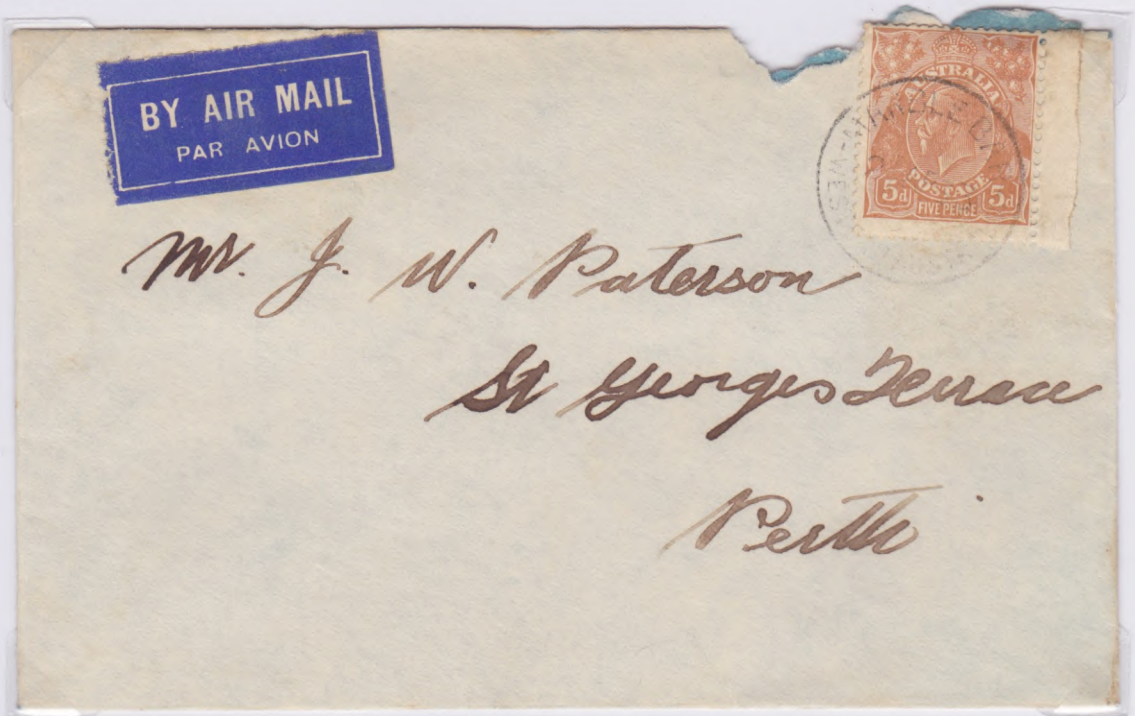 BY AIR MAIL
PAR AVION
AUSTRALIA
5d POSTAGE 5d
FIVE PENCE
Mr. J. W. Paterson
St Georges Terrace
Perth